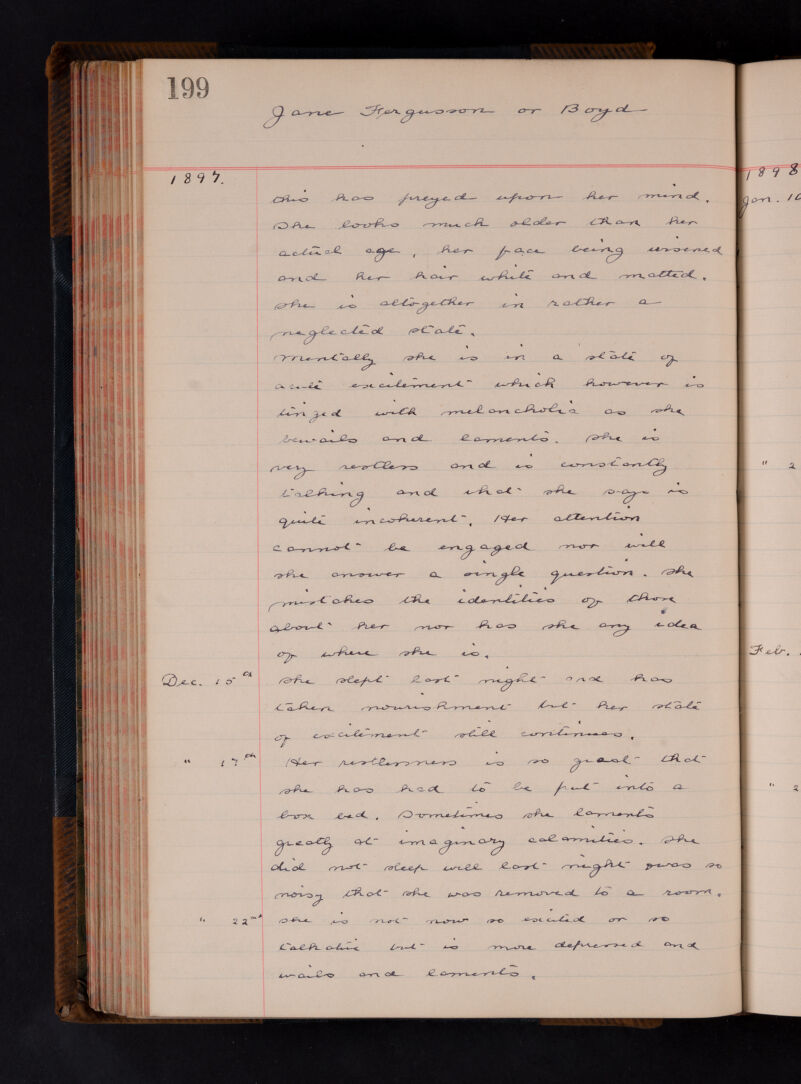 199
Jane Fergusson or Boyd
1897.
this has preyed upon her mind.
She looks much older than her
actual age, her face being
and her hair white and matted.
she is altogether in rather a
neglected state.
Mentally she is in a state of
acute excitement which however is
tinged with melancholia as she
bewails and laments. She is
very restless and is constantly
talking and what she says is
quite incoherent. Her attention
cannot be engaged nor will
she answer a single question. she
mistakes the identities of those
about her nor has she any idea
of where she is.
Dec. 15th she slept last night and has
taken nourishment but her state
of excitement still continues.
" 17th Her restlessness is so great that
she has had to be put into a
box bed. Sometimes she laments
greatly at imaginary calamities. She
did not sleep well last night & was so
noisy that she was removed to a room.
" 22nd she is not now so excited or so
talkative but is more depressed and
wails and laments.
1898
Jan. 1
" 2
Feb.
" 2